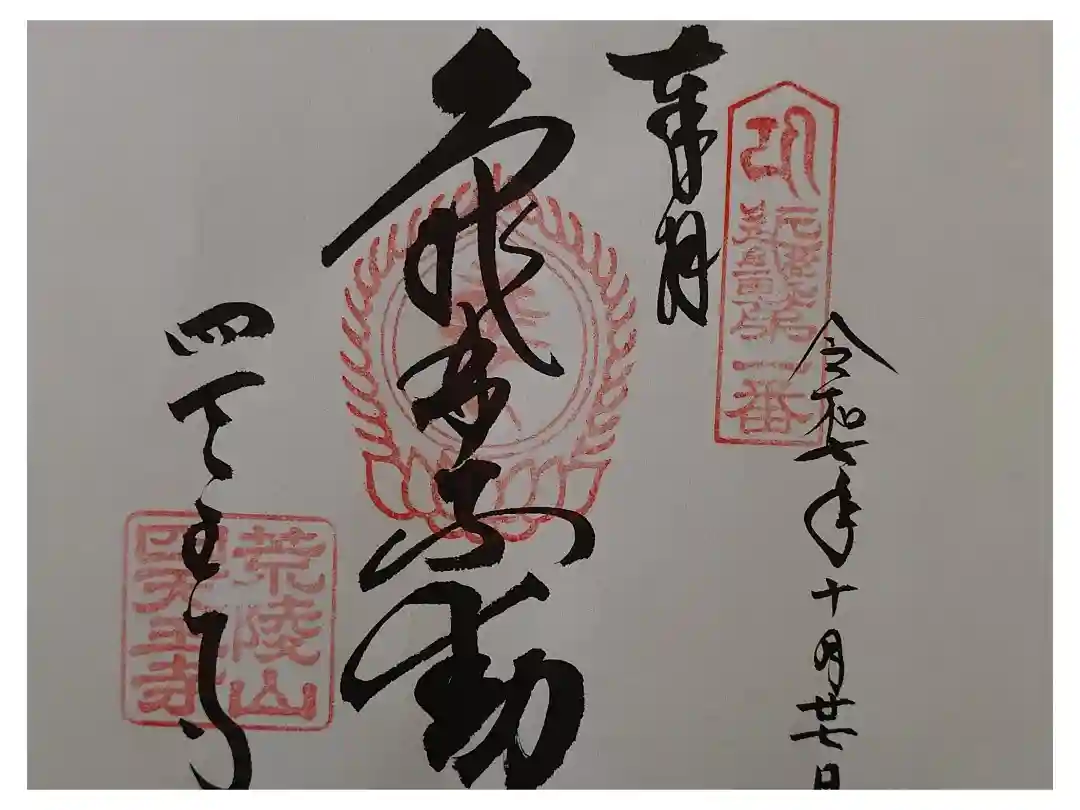 令和七年十月廿七日
第一番
奉拝
亀井不動
四天王寺
荒陵山
四天王寺